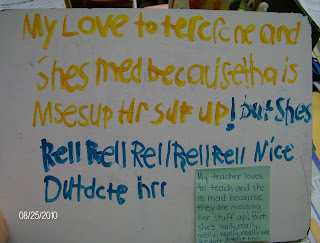 My Love to tercfcne and
Shes med becausetha is
Msesup Hr suff up! but Shes
Rell Rell Rell Rell Rell Nice
Dutdcte hrr
My teacher loves
to teach and she
is mad because
they are messing
her stuff up! But
she's really, really,
really, really, really nice
08/25/2010